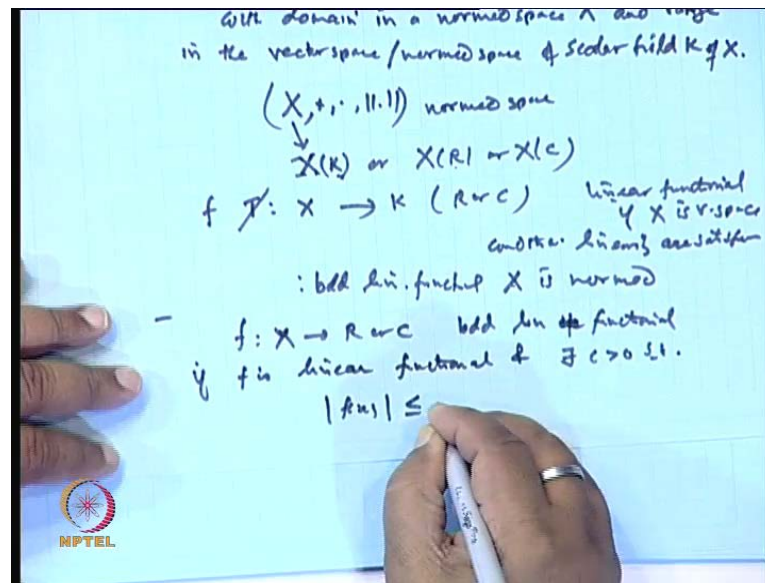 with domain in a normed space X and range
in the vector space/normed space of scalar field K of X.
(X, +, ·, ||.||) normed space
X(K) or X(R) or X(C)
f T: X → K (R or C) linear functional
if X is v. space
condition linearity are satisfied
: bdd lin. functional X is normed
- f: X → R or C bdd lin functional
if f is linear functional & ∃ c>0 s.t.
|f(x)| ≤
NPTEL